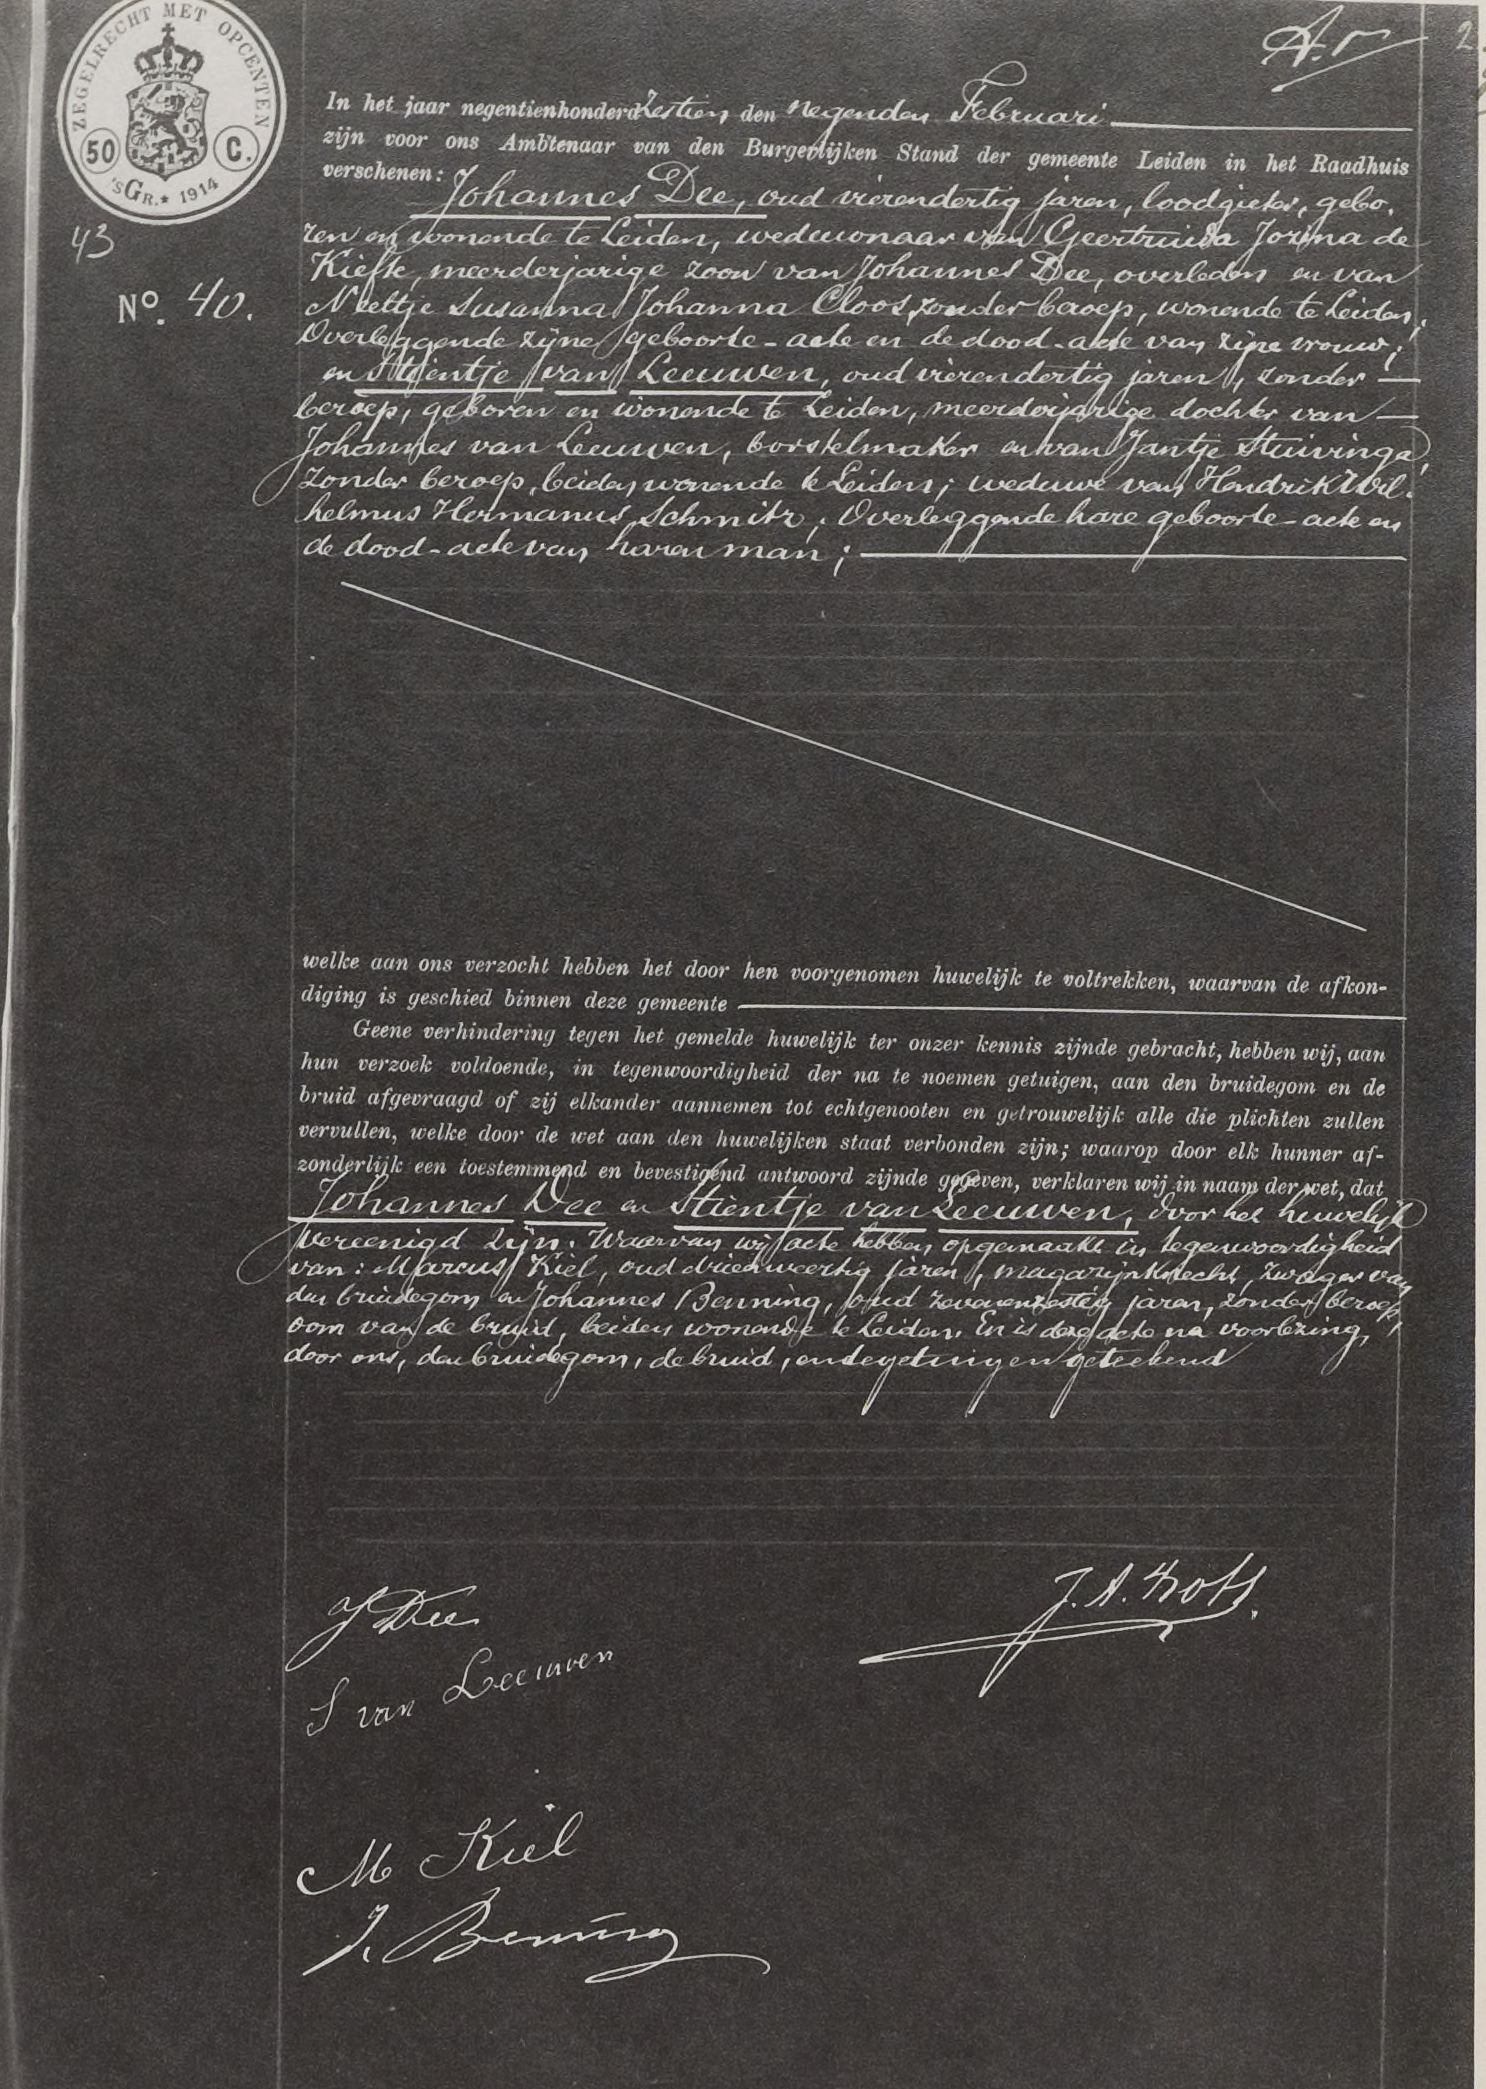 ZEGELRECHT MET OPCENTEN
50 C.
'SGR. * 1914
2
43
No. 40.
In het jaar negentienhonderd Zestien den negenden Februari
zijn voor ons Ambtenaar van den Burgerlijken Stand der gemeente Leiden in het Raadhuis
verschenen:
Johannes Dee, oud vierendertig jaren, loodgieter, gebo-
ren en wonende te Leiden, weduwnaar van Geertruida Jorina de
Kiefte, meerderjarige zoon van Johannes Dee, overleden en van
Neeltje Susanna Johanna Cloos, zonder beroep, wonende te Leiden,
Overleggende zijne geboorte-acte en de dood-acte van zijne vrouw;
en Stientje van Leeuwen, oud vierendertig jaren, zonder
beroep, geboren en wonende te Leiden, meerderjarige dochter van
Johannes van Leeuwen, borstelmaker en van Jantje Stuivinga,
zonder beroep, beiden wonende te Leiden; weduwe van Hendrik Wil-
helmus Hermanus Schmitz, Overleggende hare geboorte-acte en
de dood-acte van haren man;
welke aan ons verzocht hebben het door hen voorgenomen huwelijk te voltrekken, waarvan de afkon-
diging is geschied binnen deze gemeente
Geene verhindering tegen het gemelde huwelijk ter onzer kennis zijnde gebracht, hebben wij, aan
hun verzoek voldoende, in tegenwoordigheid der na te noemen getuigen, aan den bruidegom en de
bruid afgevraagd of zij elkander aannemen tot echtgenooten en getrouwelijk alle die plichten zullen
vervullen, welke door de wet aan den huwelijken staat verbonden zijn; waarop door elk hunner af-
zonderlijk een toestemmend en bevestigend antwoord zijnde gegeven, verklaren wij in naam der wet, dat
Johannes Dee en Stientje van Leeuwen, door het huwelijk
vereenigd zijn. Waarvan wij acte hebben opgemaakt in tegenwoordigheid
van: Marcus Kiel, oud drieënveertig jaren, magazijnknecht, zwager van
den bruidegom en Johannes Benning, oud zevenenzestig jaren, zonder beroep,
oom van de bruid, beiden wonende te Leiden. En is deze acte na voorlezing,
door ons, den bruidegom, de bruid, en de getuigen geteekend
J Dee
S van Leeuwen
M Kiel
J. Benning